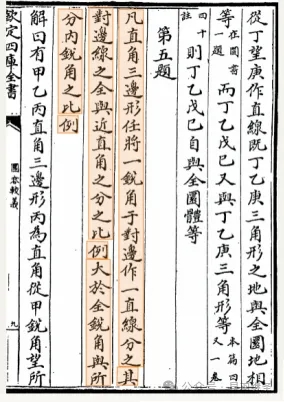 從丁望庚作直線旣丁乙庚三角形之地與全圜地相
等在圜書一題而丁乙戊己又與丁乙庚三角形等本篇四又一卷
四十一註則丁乙戊己自與全圜體等
第五題
凡直角三邊形任將一銳角于對邊作一直線分之其
對邊線之全與近直角之分之比例大於全銳角與所
分內銳角之比例
解曰有甲乙丙直角三邊形丙為直角從甲銳角望所
欽定四庫全書
圜容較義
九
公众号